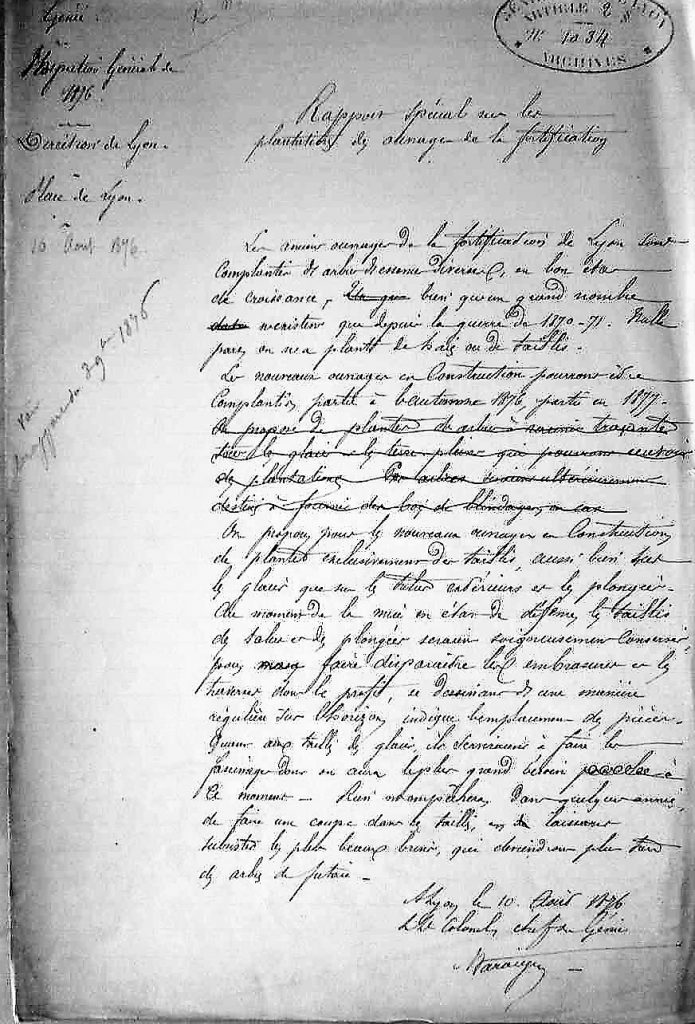 Génie
Inspection Générale de
1876
Direction de Lyon.
Place de Lyon.
10 Août 1876
GÉNIE LYON
ARTICLE 2
N° 1034
ARCHIVES
Rapport spécial sur les
plantations des ouvrages de la fortification
9bre 1876
Les anciens ouvrages de la fortification de Lyon sont
complantés d'arbres d'essences diverses, en bon état
de croissance, bien qu'un grand nombre
n'existent que depuis la guerre de 1870-71. Nulle
part, on n'a planté de haies ou de taillis.
Les nouveaux ouvrages en Construction pourront être
Complantés, partie à l'automne 1876, partie en 1877.
On propose de planter des arbres à racines traçantes
sur les glacis et les terre-pleins que pourront recevoir
des plantations. Ces arbres seraient ultérieurement
destinés à fournir des bois de blindages, en cas
On propose, pour les nouveaux ouvrages en Construction,
de planter exclusivement des taillis, aussi bien sur
les glacis que sur les talus extérieurs et les plongées.
Au moment de la mise en état de défense, les taillis
de talus et des plongées seraient soigneusement conservés,
pour faire disparaître les embrasures et les
traverses dont le profil, se dessinant d'une manière
régulière sur l'horizon, indique l'emplacement des pièces.
Quant aux taillis des glacis, ils serviraient à faire les
fascinages dont on aura le plus grand besoin à
ce moment. - Rien n'empêchera, dans quelques années,
de faire une coupe dans les taillis, en laissant
subsister les plus beaux brins, qui deviendront plus tard
des arbres de futaie. -
A Lyon le 10 Août 1876
Le Lt Colonel, chef du Génie